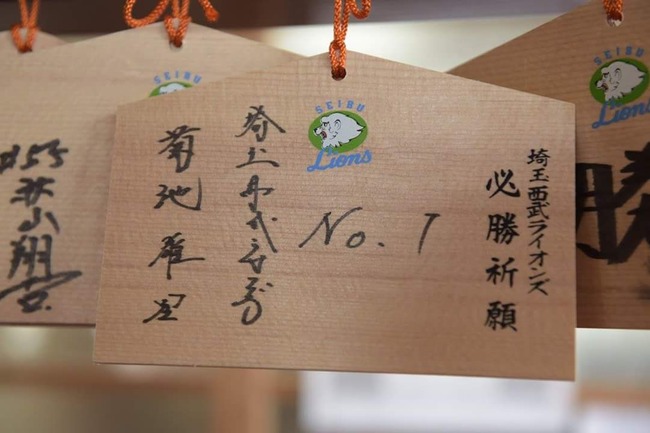 SEIBU
Lions
埼玉西武ライオンズ
必勝祈願
No. 1
菊池雄星
#55
秋山翔吾
SEIBU
SEIBU
Lions
勝